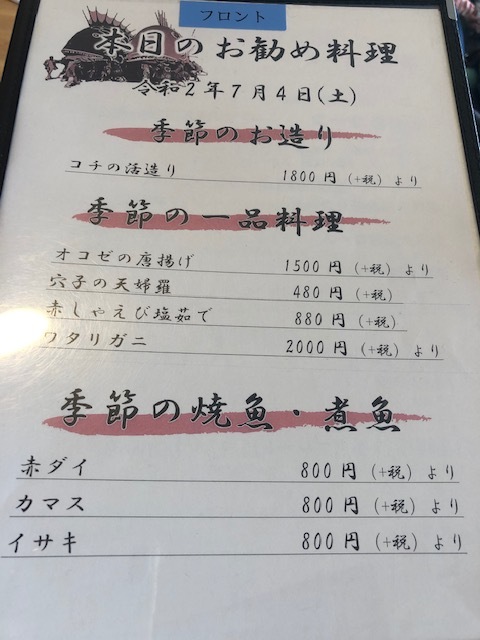 フロント
本日のお勧め料理
令和2年7月4日(土)
季節のお造り
コチの活造り 1800円(+税)より
季節の一品料理
オコゼの唐揚げ 1500円(+税)より
穴子の天婦羅 480円(+税)
赤しゃえび塩茹で 880円(+税)
ワタリガニ 2000円(+税)より
季節の焼魚・煮魚
赤ダイ 800円(+税)より
カマス 800円(+税)より
イサキ 800円(+税)より